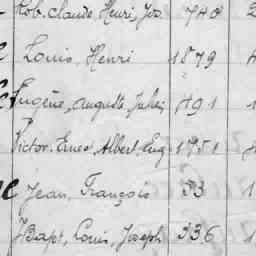 Rob. Claude, Henri, Jos. 740
Louis, Henri 1879
Eugène, Auguste Jules 491
Victor. Ernes. Albert, Eug 1751
Jean, François 53
JBapt, Louis, Joseph 236